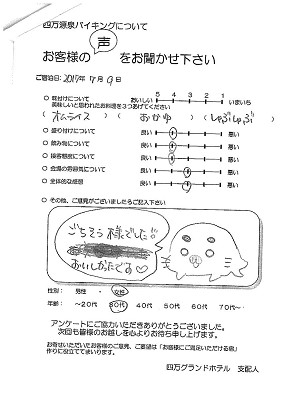 四万源泉バイキングについて
お客様の声をお聞かせ下さい
ご宿泊日:2017年7月9日
○ 味付けについて おいしい 5 4 3 2 1 いまいち
美味しいと思われたお料理を3つあげてください
(オムライス)(おかゆ)(しゃぶしゃぶ)
○ 盛り付けについて 良い 悪い
○ 飲み物について 良い 悪い
○ 接客態度について 良い 悪い
○ 会場の雰囲気について 良い 悪い
○ 全体的な感想 良い 悪い
○ その他、ご意見がございましたらご記入下さい
ごちそう様でした!!
おいしかったです♡
性別: 男性 ・ 女性
年齢: ~20代 30代 40代 50代 60代 70代~
アンケートにご協力いただきありがとうございました。
次回も皆様のお越しを心よりお待ち申し上げます。
お寄せいただいたお客様のご意見、ご要望は「お客様にご満足いただける宿」
作りに役立ててまいります。
四万グランドホテル 支配人